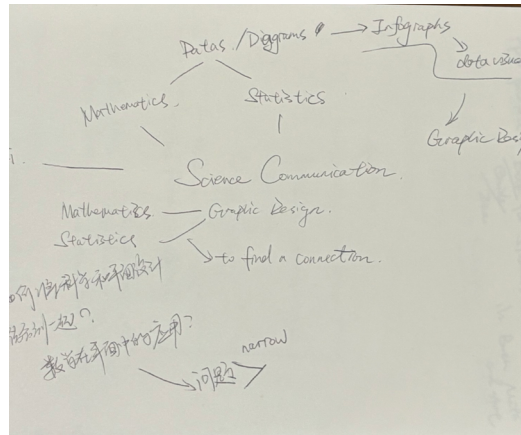 Datas./Diggrams → Infographs
data visua
Mathematics.
Statistics
Graphic Desi
Science Communication.
Mathematics — Graphic Design.
Statistics
→ to find a connection.
如何将科学和平面设计
一起?
数学在平面中的应用?
→ 问题 > narrow